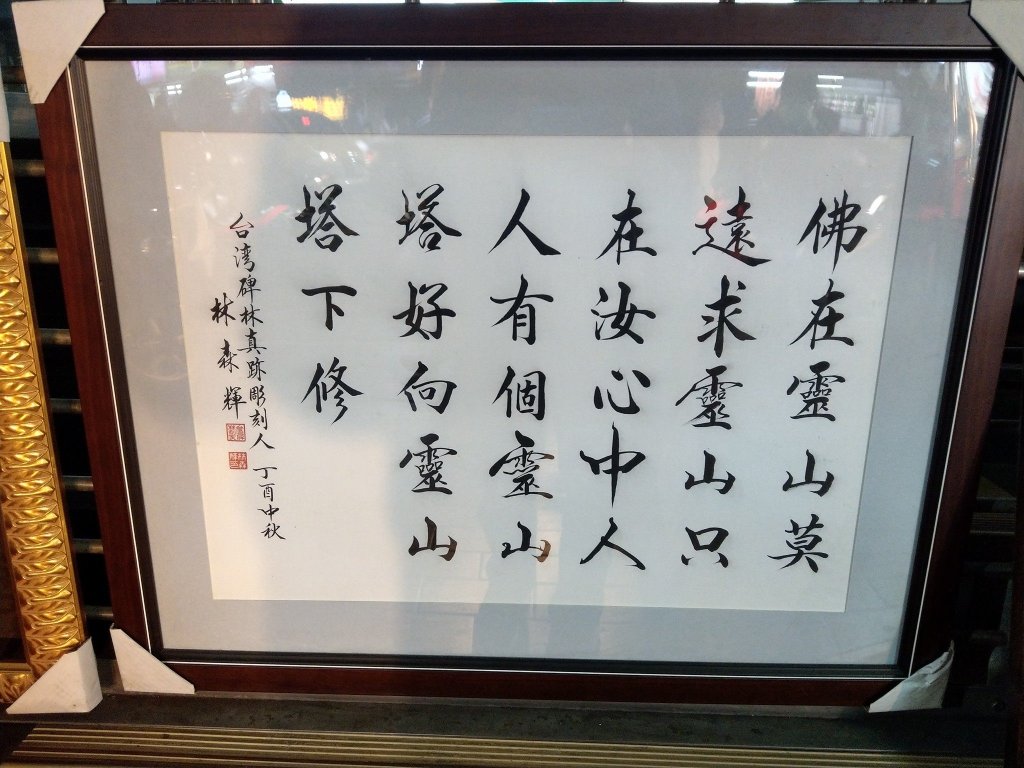 佛在靈山莫
遠求靈山只
在汝心中人
人有個靈山
塔好向靈山
塔下修
台湾碑林真跡彫刻人 丁酉中秋
林森輝